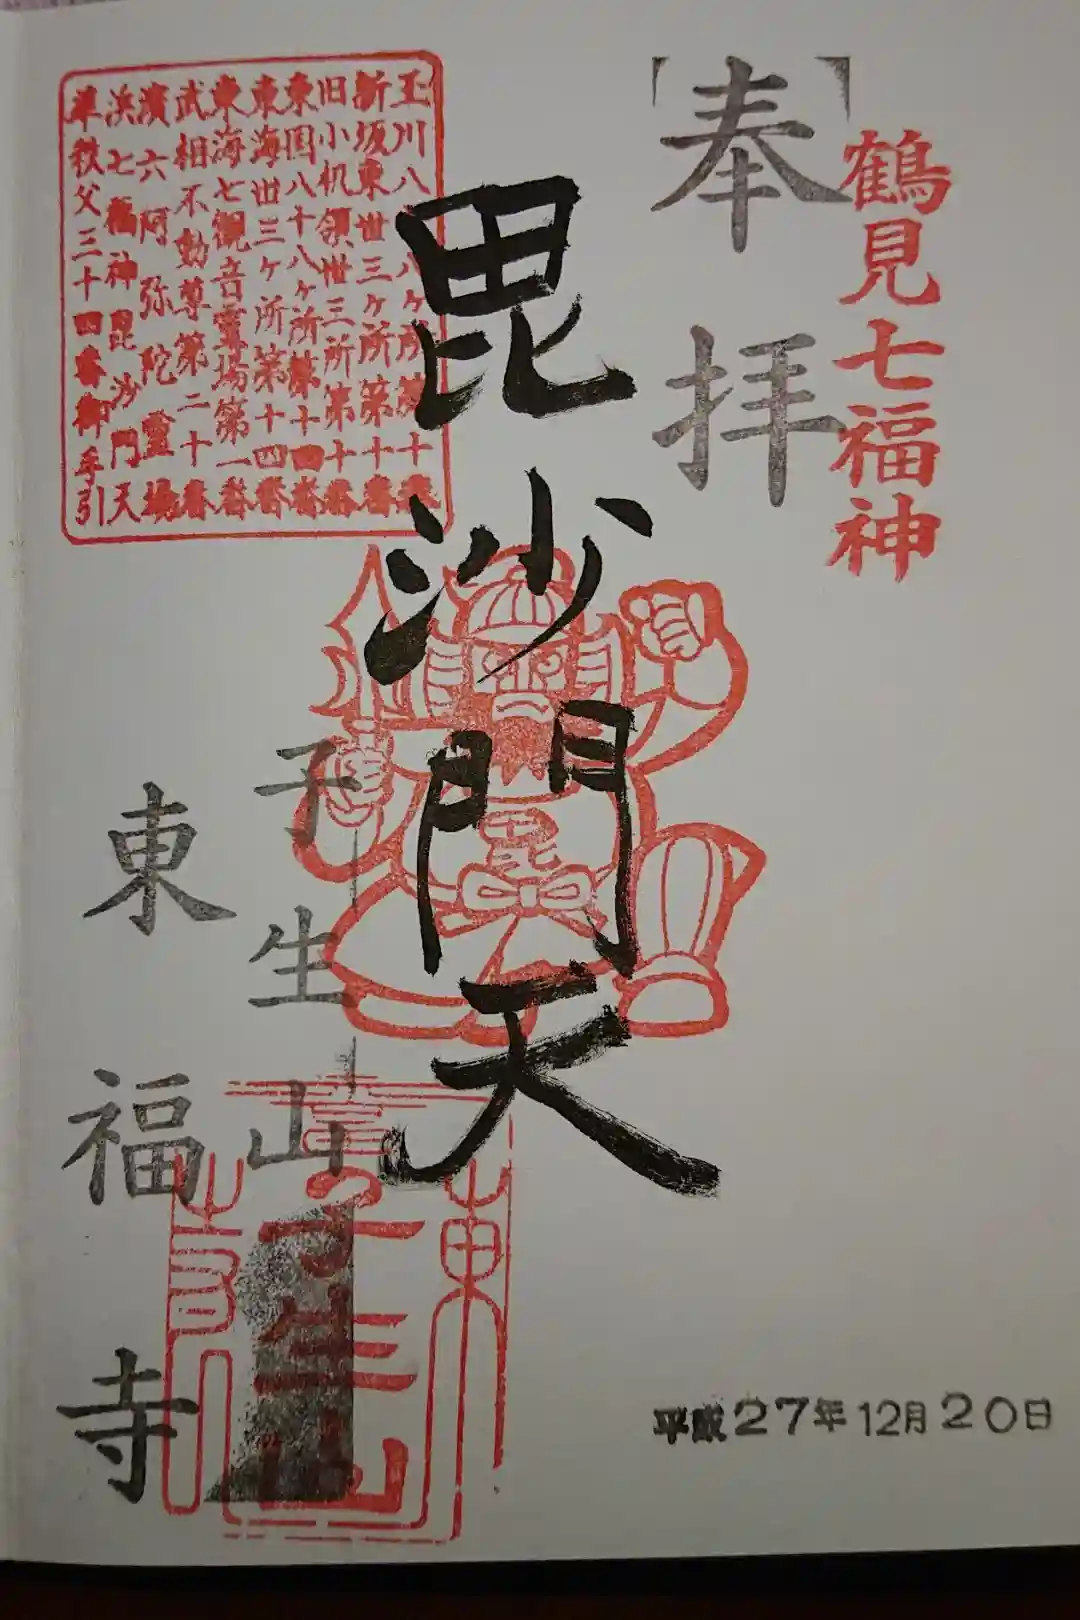 鶴見七福神
奉拝
毘沙門天
玉川八十八ヶ所第十番
新坂東丗三ヶ所第十番
旧小机領丗三所第十番
東国八十八ヶ所第十四番
東海丗三ヶ所第十四番
東海七観音霊場第一番
武相不動尊第二十番
濱六阿弥陀霊場
浜七福神毘沙門天
準秩父三十四番御手引
子生山
東福寺
平成27年12月20日